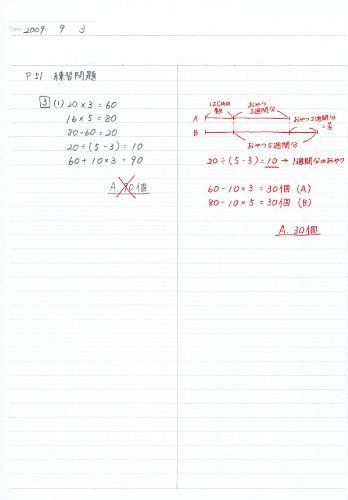 Date 2009 9 3
P51 練習問題
3 (1) 20×3=60
16×5=80
80-60=20
20÷(5-3)=10
60+10×3=90
A. 90個
はじめの
数
おやつ
3週間分
おやつ2週間分
=差
A
B
おやつ5週間分
20÷(5-3)=10→1週間分のおやつ
60-10×3=30個 (A)
80-10×5=30個 (B)
A. 30個